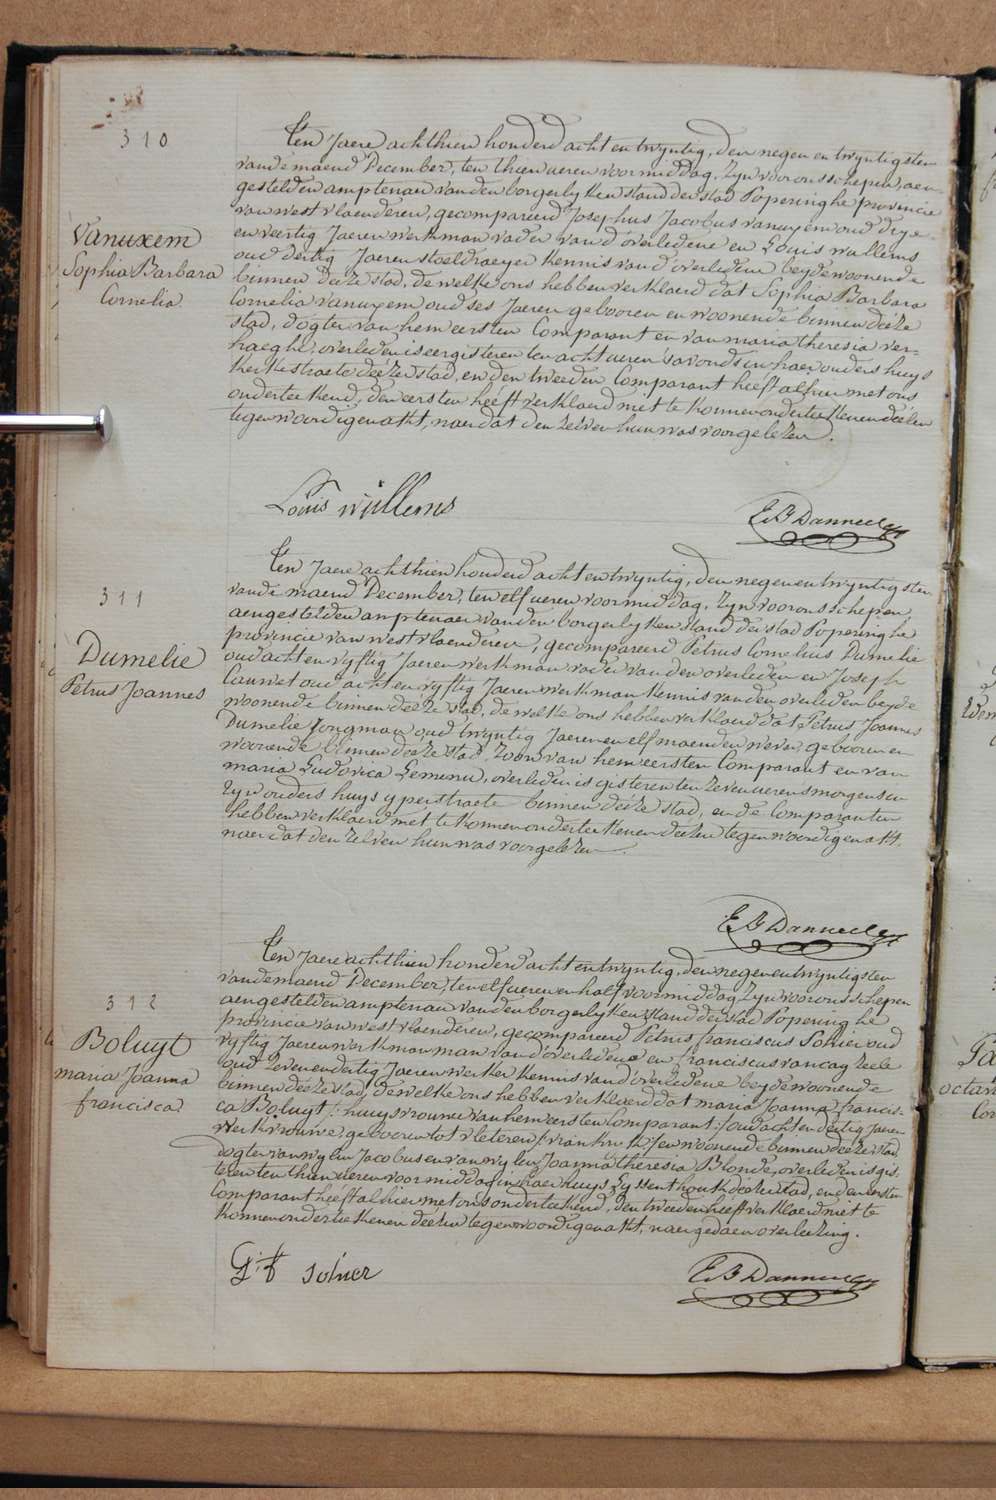 310
Vanuxem
Sophia Barbara
Cornelia
Ten Jaere achthien honderd acht en twyntig, den negen en twyntigsten
vande maend December, ten thien ueren voormiddag, zyn voor ons schepen, aen-
gestelden amptenaer van den borgerlyken stand der stad Poperinghe provincie
van westvlaenderen, gecompareerd Josephus Jacobus vanuxem oud drye
en veertig Jaeren werkman vader van d'overledene en Louis wullems
oud dertig Jaeren stoeldraeyer kennis van d'overledene beyde woonende
binnen deéze stad, de welke ons hebben verklaerd dat Sophia Barbara
Cornelia vanuxem oud ses Jaeren gebooren en woonende binnen deéze
stad, dogter van hem eersten Comparant en van maria theresia ver-
haeghe, overleden is eergisteren ten acht ueren s'avonds in haer ouders huys
kerkestraete deéze stad, en den tweeden Comparant heeft alhier met ons
onderteekend, den eersten heeft verklaerd niet te konnen onderteekenen deézen
tegenwoordigen akt, naer dat den zelven hun was voorgelezen.
Louis wüllems
E B Danneel
311
Dumelie
Petrus Joannes
Ten Jaere achthien honderd acht en twyntig, den negen en twyntigsten
vande maend December, ten elf ueren voormiddag, zyn voor ons schepen,
aengestelden amptenaer van den borgerlyken stand der stad Poperinghe
provincie van westvlaenderen, gecompareerd Petrus Cornelius Dumelie
oud acht en vyftig Jaeren werkman vader van den overleden en Joseph
Cauwet oud acht en vyftig Jaeren werkman kennis van den overleden beyde
woonende binnen deéze stad, de welke ons hebben verklaerd dat Petrus Joannes
Dumelie Jongman oud twyntig Jaeren en elf maenden wever, gebooren en
woonende binnen deéze stad, zoon van hem eersten Comparant en van
maria Ludovica Lemenu, overleden is gisteren ten zeven ueren smorgens in
zyn ouders huys yperstraete binnen deéze stad, en de Comparanten
hebben verklaerd niet te konnen onderteekenen deezen tegenwoordigen akt,
naer dat den zelven hun was voorgelezen.
E B Danneel
312
Boluyt
maria Joanna
francisca
Ten Jaere achthien honderd acht en twyntig, den negen en twyntigsten
vande maend December, ten elf ueren en half voormiddag, zyn voor ons schepen
aengestelden amptenaer van den borgerlyken stand der stad Poperinghe
provincie van westvlaenderen, gecompareerd Petrus franciscus Sohier oud
vyftig Jaeren werkman man van d'overledene en franciscus van cayzeele
oud zeven en dertig Jaeren werker kennis van d'overledene beyde woonende
binnen deéze stad, de welke ons hebben verklaerd dat maria Joanna francis-
ca Boluyt /: huysvrouwe van hem eersten Comparant :/ oud acht en dertig Jaeren
werkvrouwe, gebooren tot vleteren /: vrankryk :/ en woonende binnen deéze stad,
dogter van wylen Jacobus en van wylen Joanna theresia Blonde, overleden is gis-
teren ten thien ueren voormiddag in haer huys zyssenthouk deéze stad, en den eersten
Comparant heéft alhier met ons onderteekend, den tweeden heeft verklaerd niet te
konnen onderteekenen deezen tegenwoordigen akt, naer gedaen overleezing.
sohier
E B Danneel